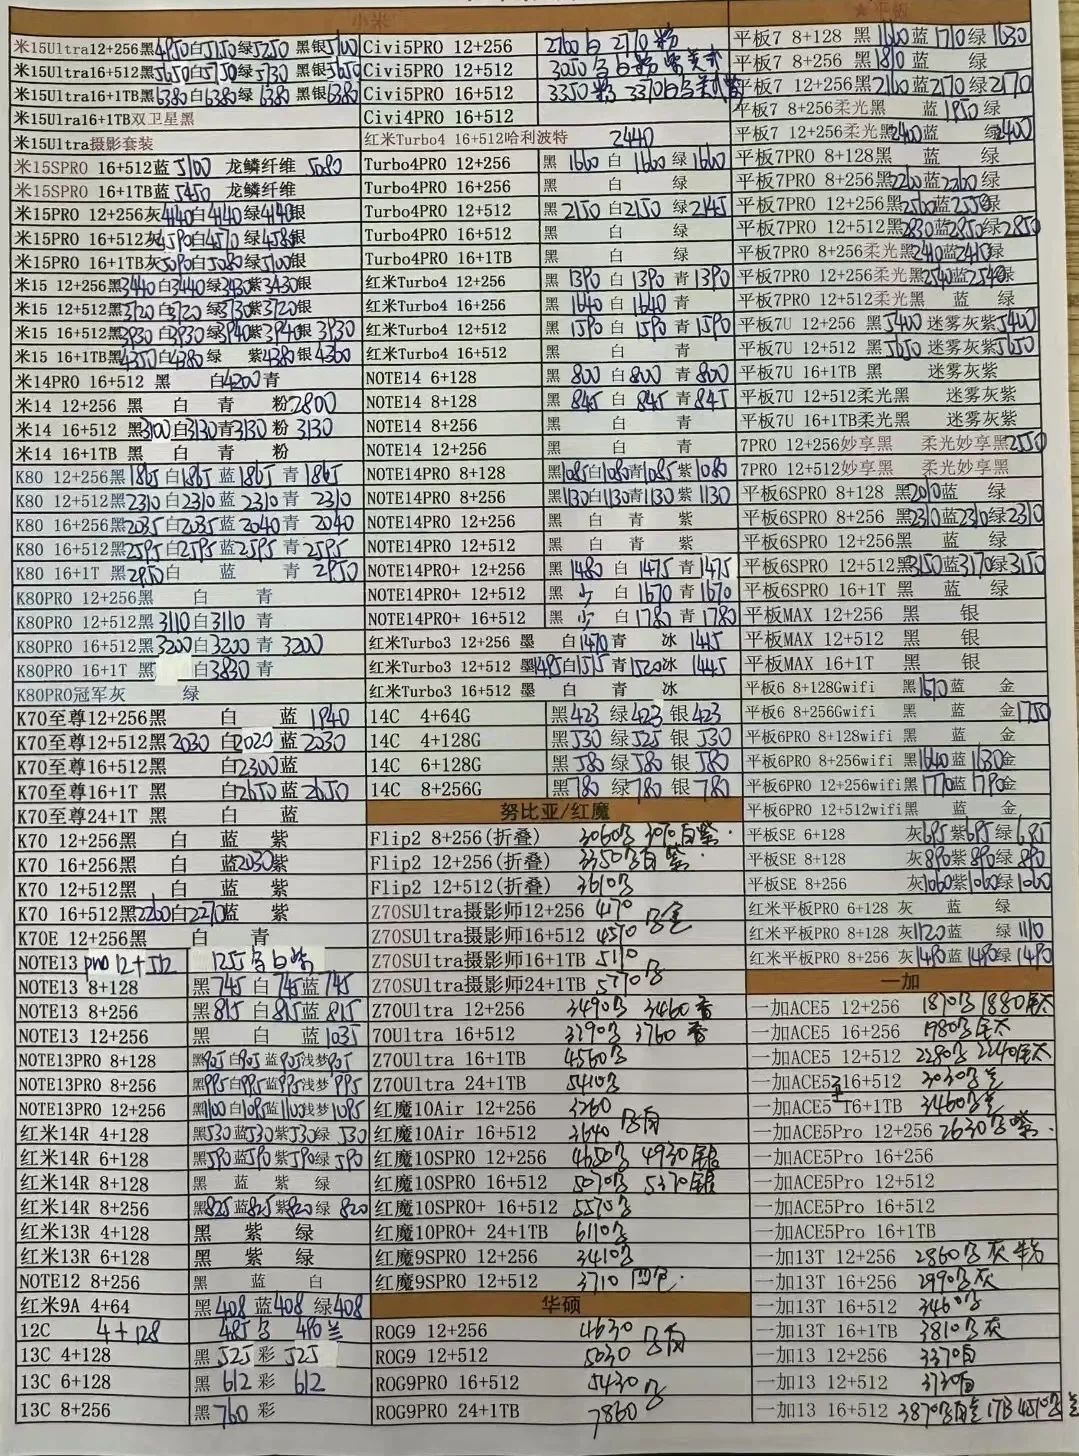 小米
米15Ultra12+256黑4950白5150绿5250 黑银5100
米15Ultra16+512黑5650白5750绿5730 黑银5650
米15Ultra16+1TB黑6380白6380绿6380 黑银6380
米15Ulra16+1TB双卫星黑
米15Ultra摄影套装
米15SPRO 16+512蓝5100 龙鳞纤维 5080
米15SPRO 16+1TB蓝5450 龙鳞纤维
米15PRO 12+256灰4140白4140绿4140银
米15PRO 16+512灰4590白4570绿4580银
米15PRO 16+1TB灰5090白5080绿5100银
米15 12+256黑3440白3440绿3430紫3430银
米15 12+512黑3720白3720绿3730紫3720银
米15 16+512黑3930白3930绿3940紫3940银 3930
米15 16+1TB黑4350白4380绿 紫4380银4360
米14PRO 16+512 黑 白4200青
米14 12+256 黑 白 青 粉2800
米14 16+512 黑3100白3130青3130 粉 3130
米14 16+1TB 黑 白 青 粉
K80 12+256黑1865白1865蓝1865青1865
K80 12+512黑2310白2310蓝2310青 2310
K80 16+256黑2035白2035蓝2040青 2040
K80 16+512黑2595白2595蓝2595青2595
K80 16+1T 黑2950白 蓝 青 2950
K80PRO 12+256黑 白 青
K80PRO 12+512黑3110白3110青
K80PRO 16+512黑3200白3200青 3200
K80PRO 16+1T 黑 白3830青
K80PRO冠军灰 绿
K70至尊12+256黑 白 蓝 1940
K70至尊12+512黑2030 白2020蓝 2030
K70至尊16+512黑 白2300蓝
K70至尊16+1T 黑 白2650蓝2650
K70至尊24+1T 黑 白 蓝
K70 12+256黑 白 蓝 紫
K70 16+256黑 白 蓝2030紫
K70 12+512黑 白 蓝 紫
K70 16+512黑2260白2270蓝 紫
K70E 12+256黑 白 青
NOTE13 pro 12+512 1255 白紫
NOTE13 8+128 黑745白745蓝745
NOTE13 8+256 黑815白815蓝815
NOTE13 12+256 黑 白 蓝1035
NOTE13PRO 8+128 黑905白905蓝905浅梦905
NOTE13PRO 8+256 黑995白995蓝995浅梦995
NOTE13PRO 12+256 黑1100白1095蓝1100浅梦1095
红米14R 4+128 黑530蓝530紫530绿 530
红米14R 6+128 黑590蓝590紫590绿590
红米14R 8+128 黑 蓝 紫 绿
红米14R 8+256 黑825蓝825紫820绿 820
红米13R 4+128 黑 紫 绿
红米13R 6+128 黑 紫 绿
NOTE12 8+256 黑 蓝 白
红米9A 4+64 黑408蓝408绿408
12C 4+128 485 490兰
13C 4+128 黑525彩525
13C 6+128 黑612彩 612
13C 8+256 黑760彩
Civi5PRO 12+256 2760白 2770粉
Civi5PRO 12+512 3050
Civi5PRO 16+512 3350粉 3370
Civi4PRO 16+512
红米Turbo4 16+512哈利波特 2440
Turbo4PRO 12+256 黑1660白1660绿1660
Turbo4PRO 16+256 黑 白 绿
Turbo4PRO 12+512 黑2150白2150绿2145
Turbo4PRO 16+512 黑 白 绿
Turbo4PRO 16+1TB 黑 白 绿
红米Turbo4 12+256 黑1390白1390青1390
红米Turbo4 16+256 黑1640白1640青
红米Turbo4 12+512 黑1590白1590青1590
红米Turbo4 16+512 黑 白 青
NOTE14 6+128 黑800白800青800
NOTE14 8+128 黑845白845青845
NOTE14 8+256 黑 白 青
NOTE14 12+256 黑 白 青
NOTE14PRO 8+128 黑1085白1080青1085紫1080
NOTE14PRO 8+256 黑1130白1130青1130紫1130
NOTE14PRO 12+256 黑 白 青 紫
NOTE14PRO 12+512 黑 白 青 紫
NOTE14PRO+ 12+256 黑1480白1475青1475
NOTE14PRO+ 12+512 黑少 白1670青1670
NOTE14PRO+ 16+512 黑少 白1780青1780
红米Turbo3 12+256 墨 白1470青 冰1445
红米Turbo3 12+512 墨1495白1515青1520冰1445
红米Turbo3 16+512 墨 白 青 冰
14C 4+64G 黑423绿423银423
14C 4+128G 黑530绿525银530
14C 6+128G 黑580绿580银580
14C 8+256G 黑780绿780银780
努比亚/红魔
Flip2 8+256(折叠) 3060 3070白紫
Flip2 12+256(折叠) 3350 白紫
Flip2 12+512(折叠) 3610
Z70SUltra摄影师12+256 4170
Z70SUltra摄影师16+512 4570
Z70SUltra摄影师16+1TB 5110
Z70SUltra摄影师24+1TB 5770
Z70Ultra 12+256 3490 3460
70Ultra 16+512 3790 3760
Z70Ultra 16+1TB 4560
Z70Ultra 24+1TB 5410
红魔10Air 12+256 3260
红魔10Air 16+512 3640
红魔10SPRO 12+256 4650 4930银
红魔10SPRO 16+512 5070 5370银
红魔10SPRO+ 16+512 5570
红魔10PRO+ 24+1TB 6110
红魔9SPRO 12+256 3410
红魔9SPRO 12+512 3710 四色
华硕
ROG9 12+256 4630
ROG9 12+512 5030
ROG9PRO 16+512 5430
ROG9PRO 24+1TB 7860
★平板
平板7 8+128 黑1660蓝1710绿1630
平板7 8+256 黑1810蓝 绿
平板7 12+256黑2160蓝2170绿2170
平板7 8+256柔光黑 蓝1950绿
平板7 12+256柔光黑2400蓝 绿2400
平板7PRO 8+128黑 蓝 绿
平板7PRO 8+256黑2260蓝2260绿
平板7PRO 12+256黑2560蓝2550绿
平板7PRO 12+512黑2830蓝2850绿2850
平板7PRO 8+256柔光黑2410蓝2415绿
平板7PRO 12+256柔光黑2540蓝2540绿
平板7PRO 12+512柔光黑 蓝 绿
平板7U 12+256 黑5400迷雾灰紫5400
平板7U 12+512 黑5650迷雾灰紫5650
平板7U 16+1TB 黑 迷雾灰紫
平板7U 12+512柔光黑 迷雾灰紫
平板7U 16+1TB柔光黑 迷雾灰紫
7PRO 12+256妙享黑 柔光妙享黑2550
7PRO 12+512妙享黑 柔光妙享黑
平板6SPRO 8+128 黑2010蓝 绿
平板6SPRO 8+256 黑2310蓝2310绿2310
平板6SPRO 12+256黑 蓝 绿
平板6SPRO 12+512黑3150蓝3170绿3150
平板6SPRO 16+1T 黑 蓝 绿
平板MAX 12+256 黑 银
平板MAX 12+512 黑 银
平板MAX 16+1T 黑 银
平板6 8+128Gwifi 黑1670蓝 金
平板6 8+256Gwifi 黑 蓝 金1750
平板6PRO 8+128wifi 黑 蓝 金
平板6PRO 8+256wifi 黑1640蓝1630金
平板6PRO 12+256wifi 黑1770蓝1790金
平板6PRO 12+512wifi黑 蓝 金
平板SE 6+128 灰685紫685绿685
平板SE 8+128 灰890紫890绿890
平板SE 8+256 灰1060紫1060绿1060
红米平板PRO 6+128 灰 蓝 绿
红米平板PRO 8+128 灰1120蓝 绿1110
红米平板PRO 8+256 灰1490蓝1490绿1490
一加
一加ACE5 12+256 1870 1880
一加ACE5 16+256 1980
一加ACE5 12+512 2280 2240
一加ACE5 16+512 3030
一加ACE5 16+1TB 3460
一加ACE5Pro 12+256 2630
一加ACE5Pro 16+256
一加ACE5Pro 12+512
一加ACE5Pro 16+512
一加ACE5Pro 16+1TB
一加13T 12+256 2860 灰
一加13T 16+256 2990 灰
一加13T 16+512 3460
一加13T 16+1TB 3810 灰
一加13 12+256 3370白
一加13 12+512 3730白
一加13 16+512 3870 1TB 4510